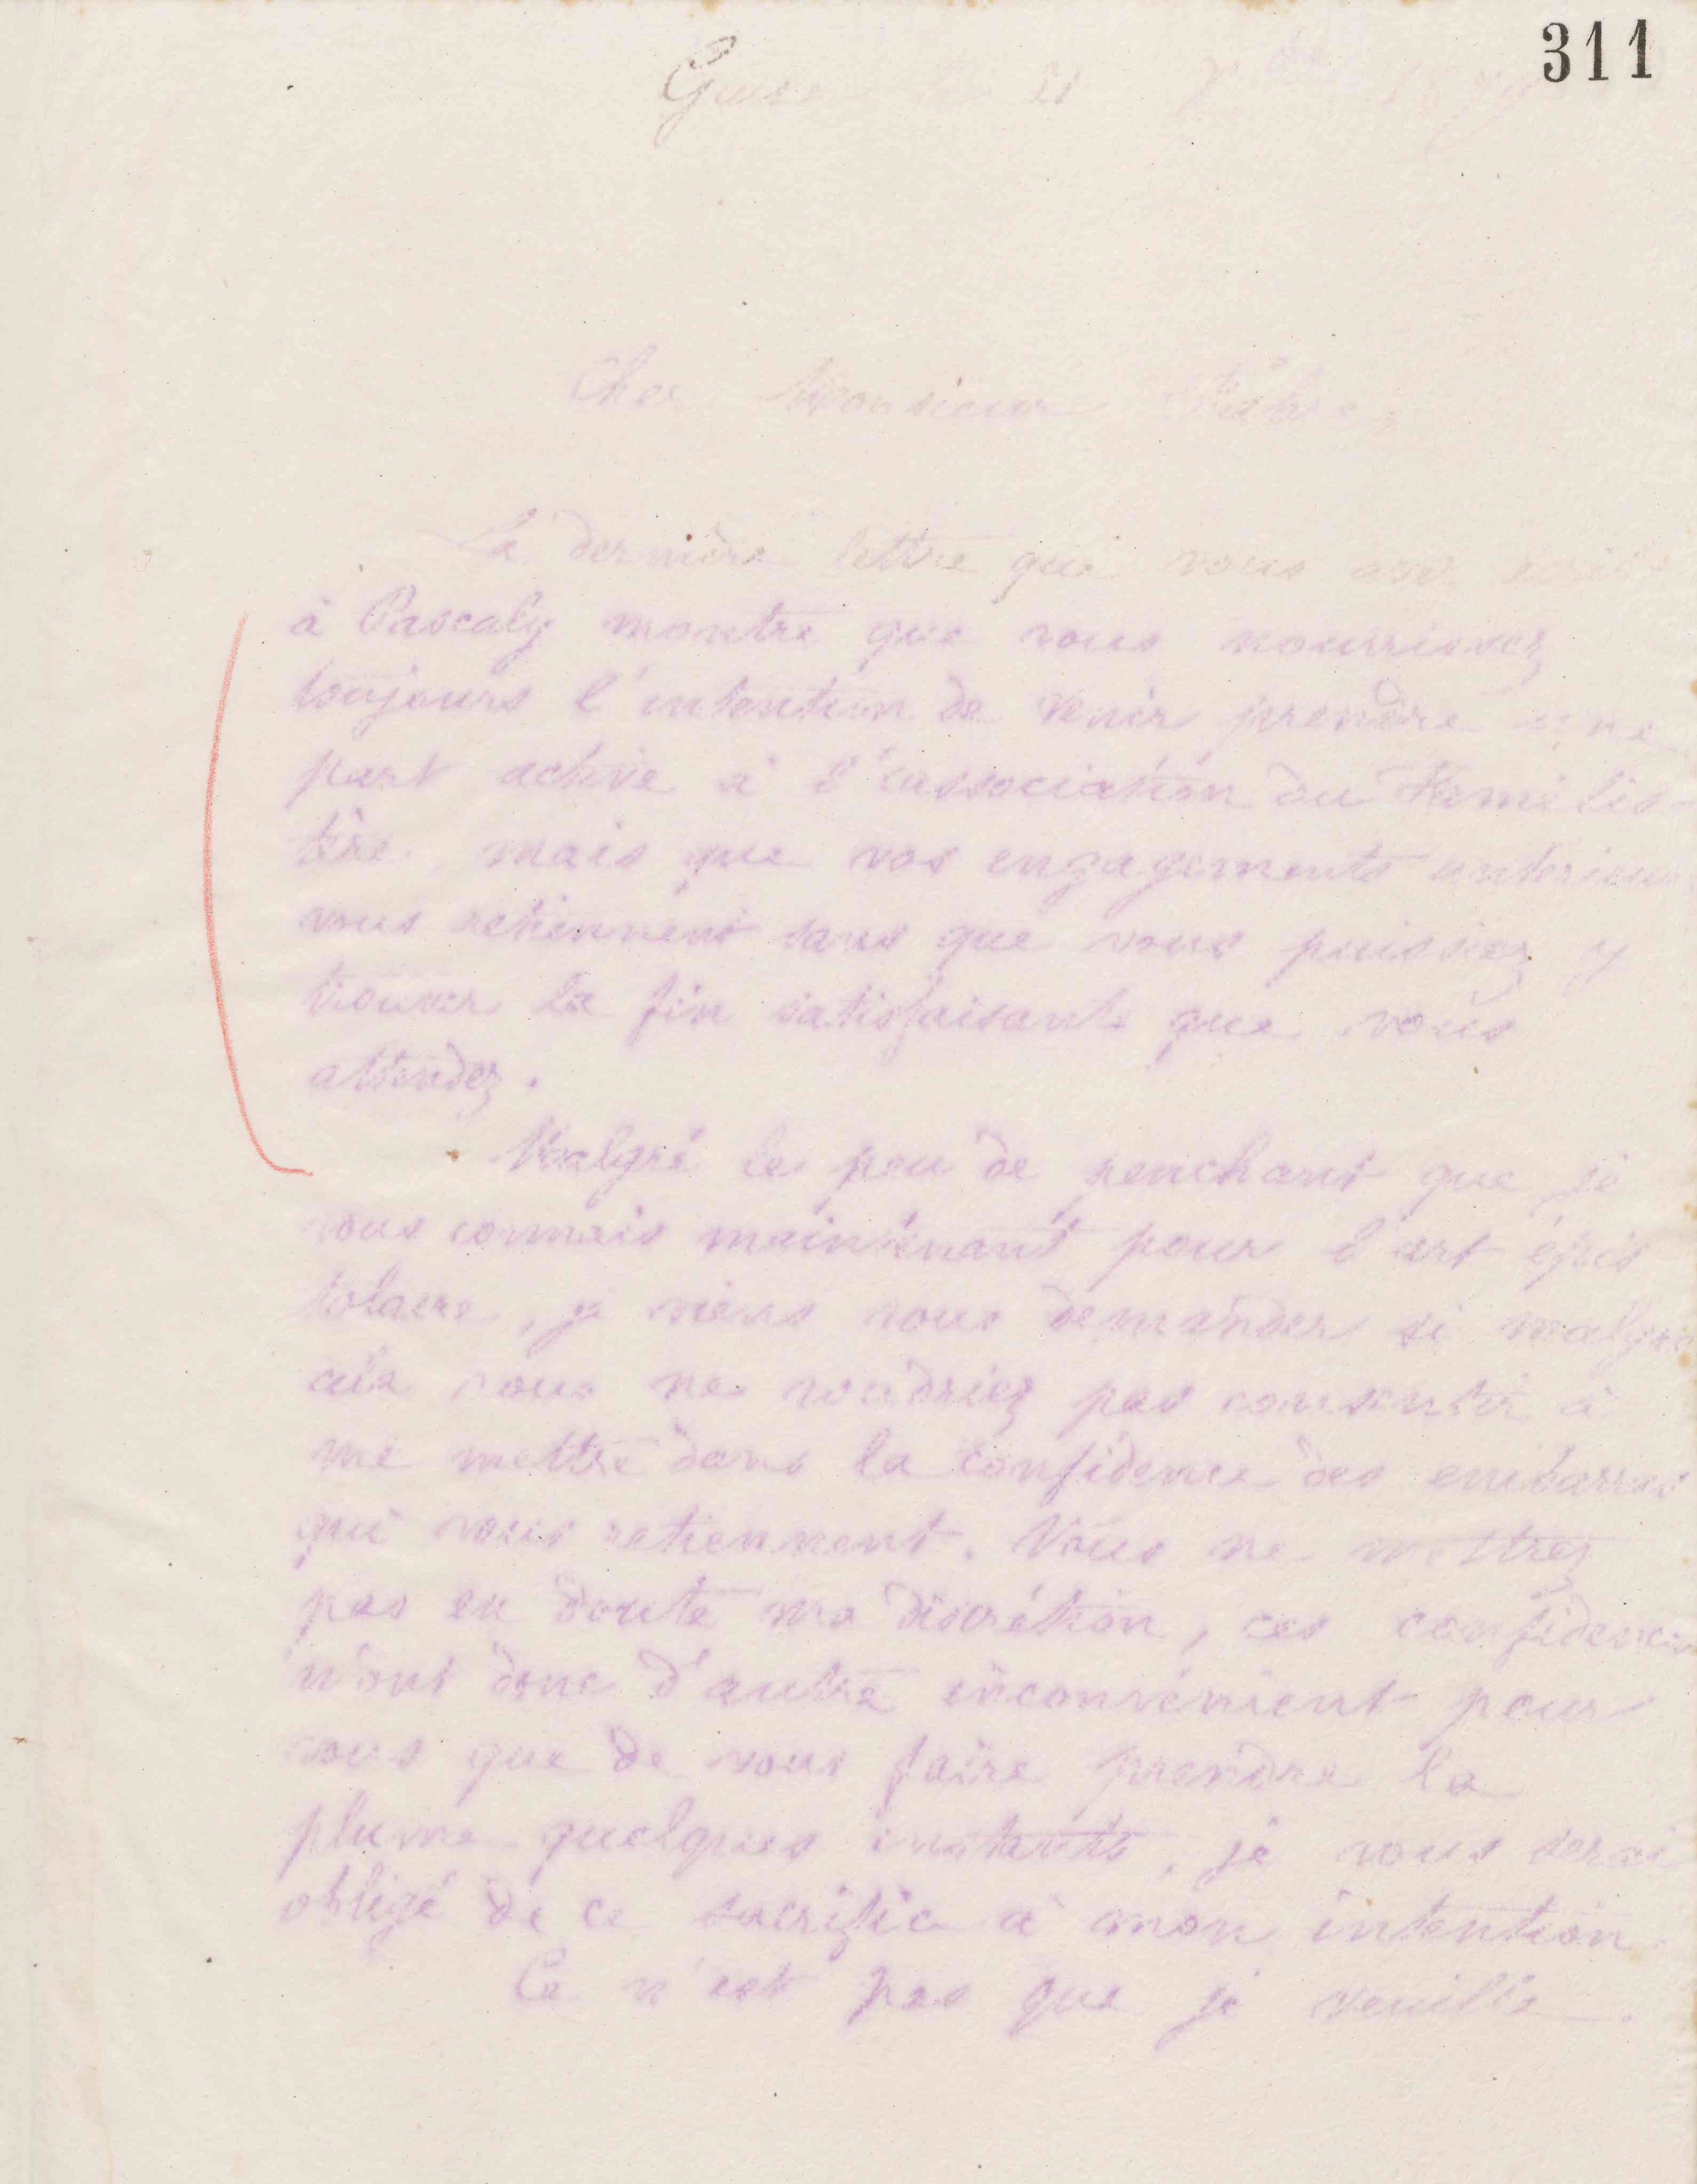 311
Guise
Cher Monsieur
La dernière lettre que vous avez
à Pascaly montre que vous nourrissez
toujours l'intention de venir prendre une
part active à l'association du Familis-
tère, mais que vos engagements antérieurs
vous retiennent sans que vous puissiez y
trouver la fin satisfaisante que vous
attendez.
Malgré le peu de penchant que je
vous connais maintenant pour l'art épis
tolaire, je viens vous demander si malgré
cela vous ne voudriez pas consentir à
me mettre dans la confidence des embarras
qui vous retiennent. Vous ne mettrez
pas en doute ma discrétion, ces confidences
n'ont donc d'autre inconvénient pour
vous que de vous faire prendre la
plume quelques instants, je vous serai
obligé de ce sacrifice à mon intention.
Ce n'est pas que je veuille